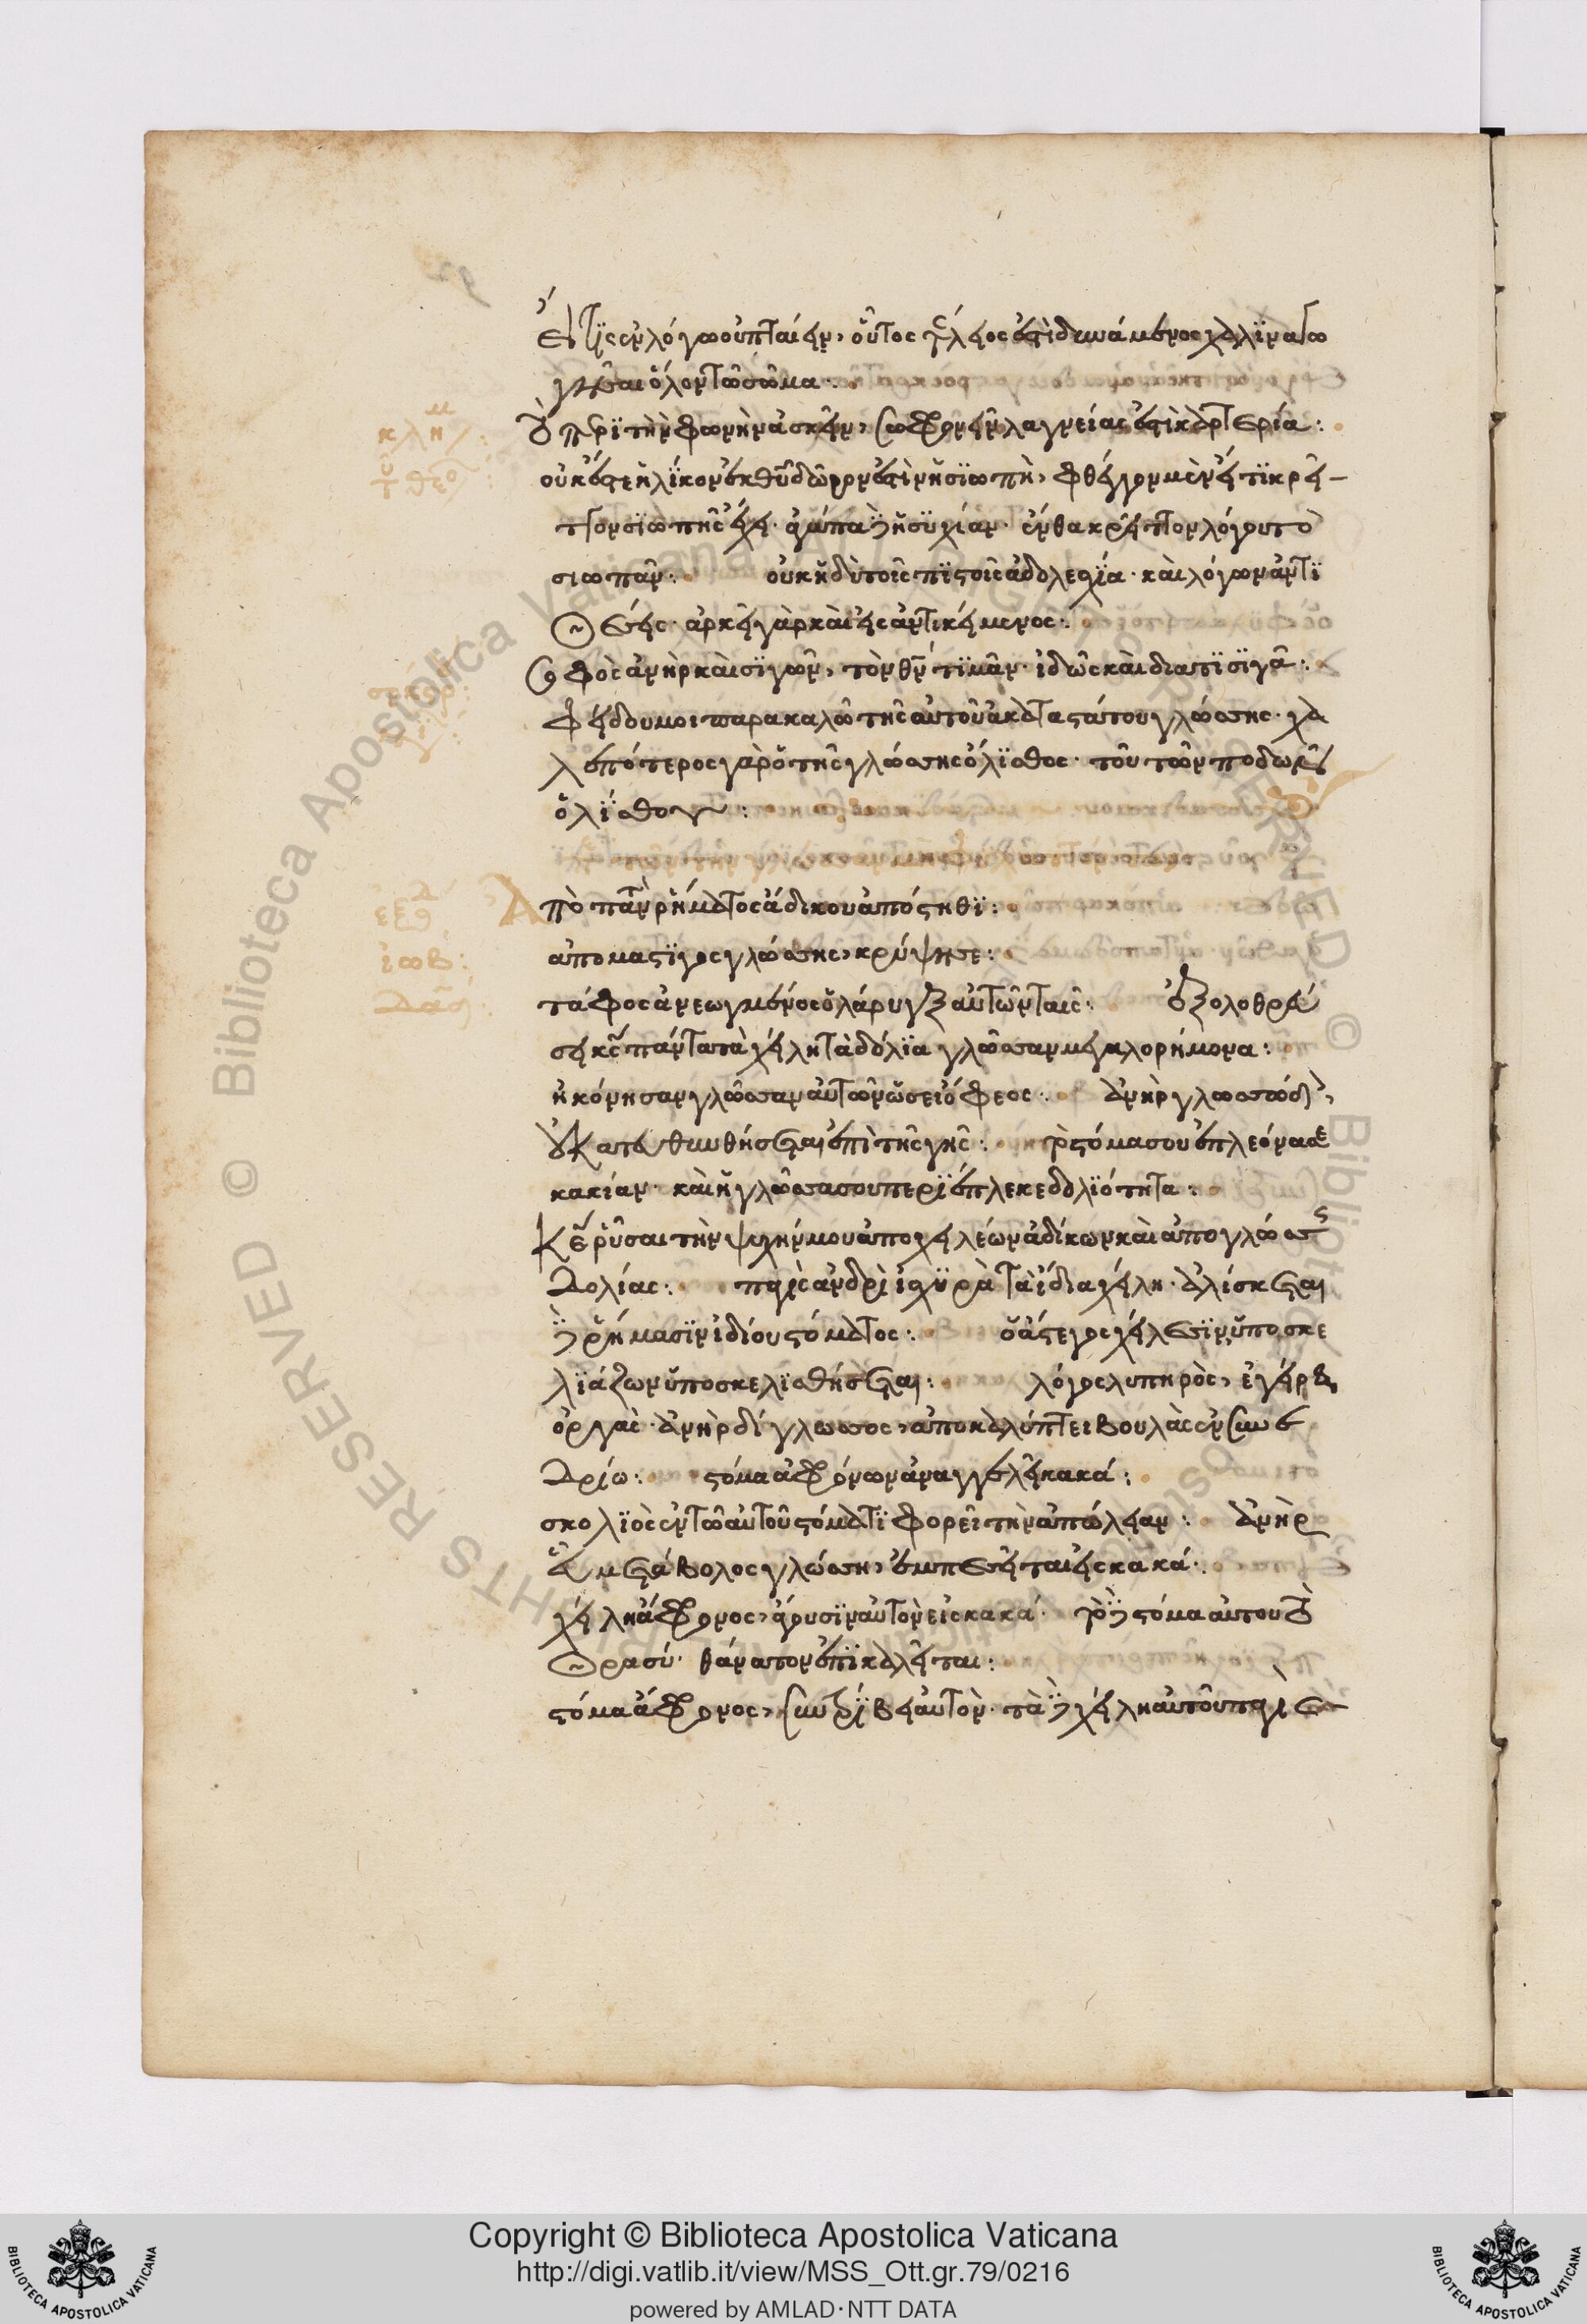 εἴ τις ἐν λόγω οὐ πταίει, οὗτος τέλειος ἐστὶ δυνάμενος χαλιναγω
γῆσαι ὅλον τὸ σῶμα:
πρὶ τὴν φωνὴν ἀσκεῖν, σωφρονεῖν λαγνείας ἐστὶ καρτερία:
οὐκ ἔστιν ἡλίκον ἐκ θεοῦ δῶρον ἐστὶν ἡ σιωπὴ, φθέγγου μὲν εἴ τι κρεῖτ
τον σιωπῆς ἔχεις· ἀγάπα δὲ ἡσυχίαν· ἔνθα κρεῖττον λόγου τὸ
σιωπᾶν: οὐχ ἡδὺ τοῖς πιστοῖς ἀδολεσχία· καὶ λόγων ἀντι
θέσεις· ἀρκεῖ γὰρ καὶ εἷς ἀντικείμενος:
σοφὸς ἀνὴρ καὶ σιγῶν, τὸν θν τιμᾶν· ἰδὼς καὶ διατί σιγᾶ:
φείδου μοι παρακαλῶ τῆς αὐτοῦ ἀκαταστάτου γλώσσης· χα
λεπότερος γὰρ ὁ τῆς γλώσσης ὀλισθος· τοῦ τῶν ποδῶν
ὀλίσθου:
κλημ:
τ θεο
Ἀπὸ παντὸς ῥήματος ἀδίκου ἀπόστηθι:
ἀπὸ μάστιγος γλώσσης, κρύψει σε:
τάφος ἀνεωγμένος ὁ λάρυγξ αὐτῶν ταῖς: ἐξολοθρεύ
σει κς πάντα τὰ χείλη τὰ δόλια γλῶσσαν μεγαλορήμονα:
ἠκόνησαν γλῶσσαν αὐτῶν ὡσεὶ ὄφεος: ἀνὴρ γλωσσώδης,
οὐ κατευθυνθήσεται ἐπὶ τῆς γῆς: τὸ στόμα σου ἐπλεόνασε
κακίαν· καὶ ἡ γλῶσσα σου περιέπλεκε δολιότητα:
κε ῥῦσαι τὴν ψυχήν μου ἀπὸ χειλέων ἀδίκων καὶ ἀπὸ γλώσσης
δολίας: παγὶς ἀνδρὶ ἰσχυρὰ τὰ ἴδια χείλη· ἁλίσκεται
δὲ ῥήμασιν ἰδίου στόματος: ὁ ἄστεγος χείλεσιν, ὑποσκε
λιάζων ὑποσκελισθήσεται: λόγος λυπηρὸς, ἐγείρει
ὀργὰς· ἀνὴρ δίγλωσσος, ἀποκαλύπτει βουλὰς ἐν συνε
δρίω: στόμα ἀφρόνων ἀναγγελεῖ κακά:
σκολιὸς ἐν τῶ αὐτοῦ στόματι φορεῖ τὴν ἀπώλειαν: ἀνὴρ
εὐμετάβολος γλώσση, ἐμπεσεῖται εἰς κακά·
χείλη ἄφρονος, ἄγουσιν αὐτὸν εἰς κακά· τὸ δὲ στόμα αὐτοῦ τὸ
θρασύ· θάνατον ἐπικαλεῖται:
στόμα ἄφρονος, συντρίβει αὐτὸν· τὰ δὲ χείλη αὐτοῦ παγὶς
ιωβ:
δαδ
Copyright © Biblioteca Apostolica Vaticana
http://digi.vatlib.it/view/MSS_Ott.gr.79/0216
powered by AMLAD·NTT DATA
BIBLIOTECA APOSTOLICA VATICANA
BIBLIOTECA APOSTOLICA VATICANA